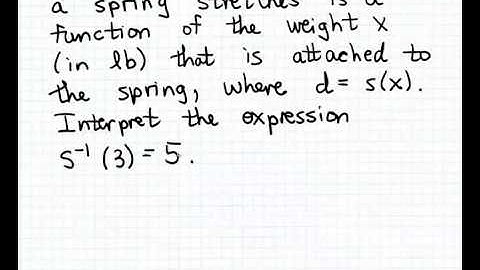 a spring stretches is a
function of the weight x
(in lb) that is attached to
the spring, where d = s(x).
Interpret the expression
s⁻¹ (3) = 5.